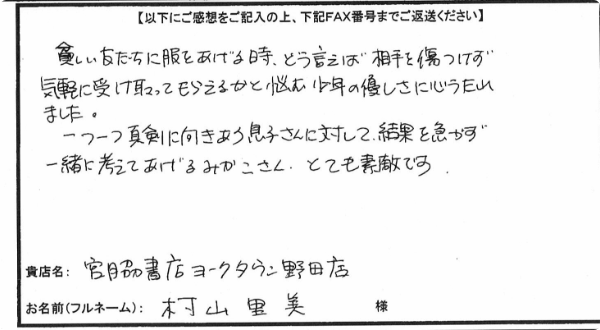 【以下にご感想をご記入の上、下記FAX番号までご返送ください】
貧しい友だちに服をあげる時、どう言えば相手を傷つけず
気軽に受け取ってもらえるかと悩む少年の優しさに心うたれ
ました。
一つ一つ真剣に向きあう息子さんに対して、結果を急かず
一緒に考えてあげるみかこさん、とても素敵です
貴店名：宮脇書店ヨークタウン野田店
お名前(フルネーム)：村山里美 様